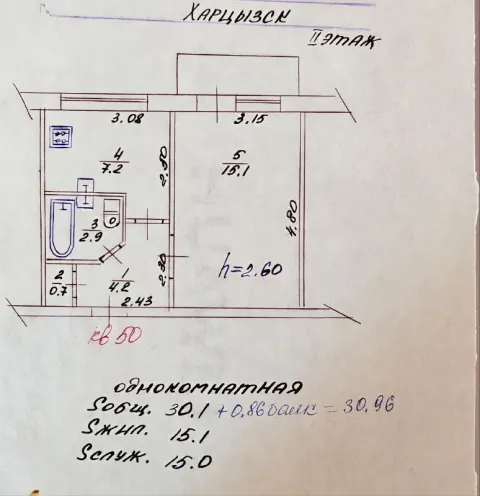 Харцызск
II этаж
3.08
3.15
4
7.2
2.80
5
15.1
4.80
3
2.9
h=2.60
2
0.7
1
4.2
2.30
2.43
кв 50
однокомнатная
Sобщ. 30.1 + 0.86 балк = 30.96
Sжил. 15.1
Sслуж. 15.0